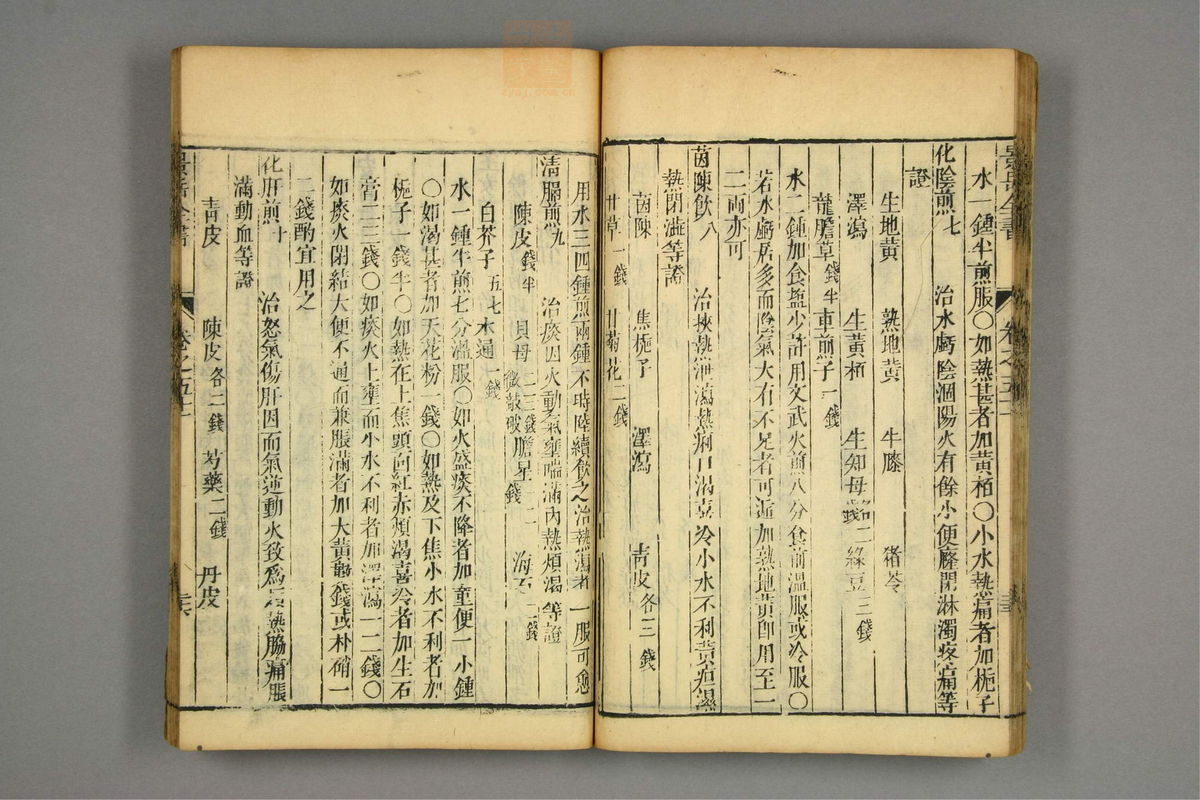 景岳全書
卷之五十一
水一鍾半煎服○如熱甚者加黃栢○小水熱痛者加梔子
化陰煎七 治水虧陰涸陽火有餘小便癃閉淋濁疼痛等
證
生地黃 熟地黃 牛膝 猪苓
澤瀉 生黃栢 生知母各二錢 綠豆三錢
龍膽草錢半 車前子一錢
水二鍾加食鹽少許用文武火煎八分食前溫服或冷服○
若水虧居多而陰氣大有不足者可逓加熟地黃卽用至一
二兩亦可
茵陳飲八 治挾熱泄瀉熱痢口渴喜冷小水不利黃疸濕
熱閉澁等證
茵陳 焦梔子 澤瀉 青皮各三錢
甘草一錢 甘菊花二錢
用水三四鍾煎兩鍾不時陸續飲之治熱瀉者一服可愈
清膈煎九 治痰因火動氣壅喘滿內熱煩渴等證
陳皮錢半 貝母二三錢微敲破 膽星一二錢 海石二錢
白芥子五七 木通一錢
水一鍾半煎七分溫服○如火盛痰不降者加童便一小鍾
○如渴甚者加天花粉一錢○如熱及下焦小水不利者加
梔子一錢半○如熱在上焦頭面紅赤煩渴喜冷者加生石
膏二三錢○如痰火上壅而小水不利者加澤瀉一二錢○
如痰火閉結大便不通而兼脹滿者加大黃數錢或朴硝一
二錢酌宜用之
化肝煎十 治怒氣傷肝因而氣逆動火致爲煩熱脇痛脹
滿動血等證
青皮 陳皮各二錢 芍藥二錢 丹皮
景岳全書
卷之五十一